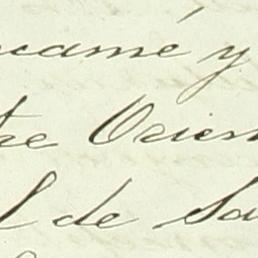 camé y
tre Orien
l de Sa